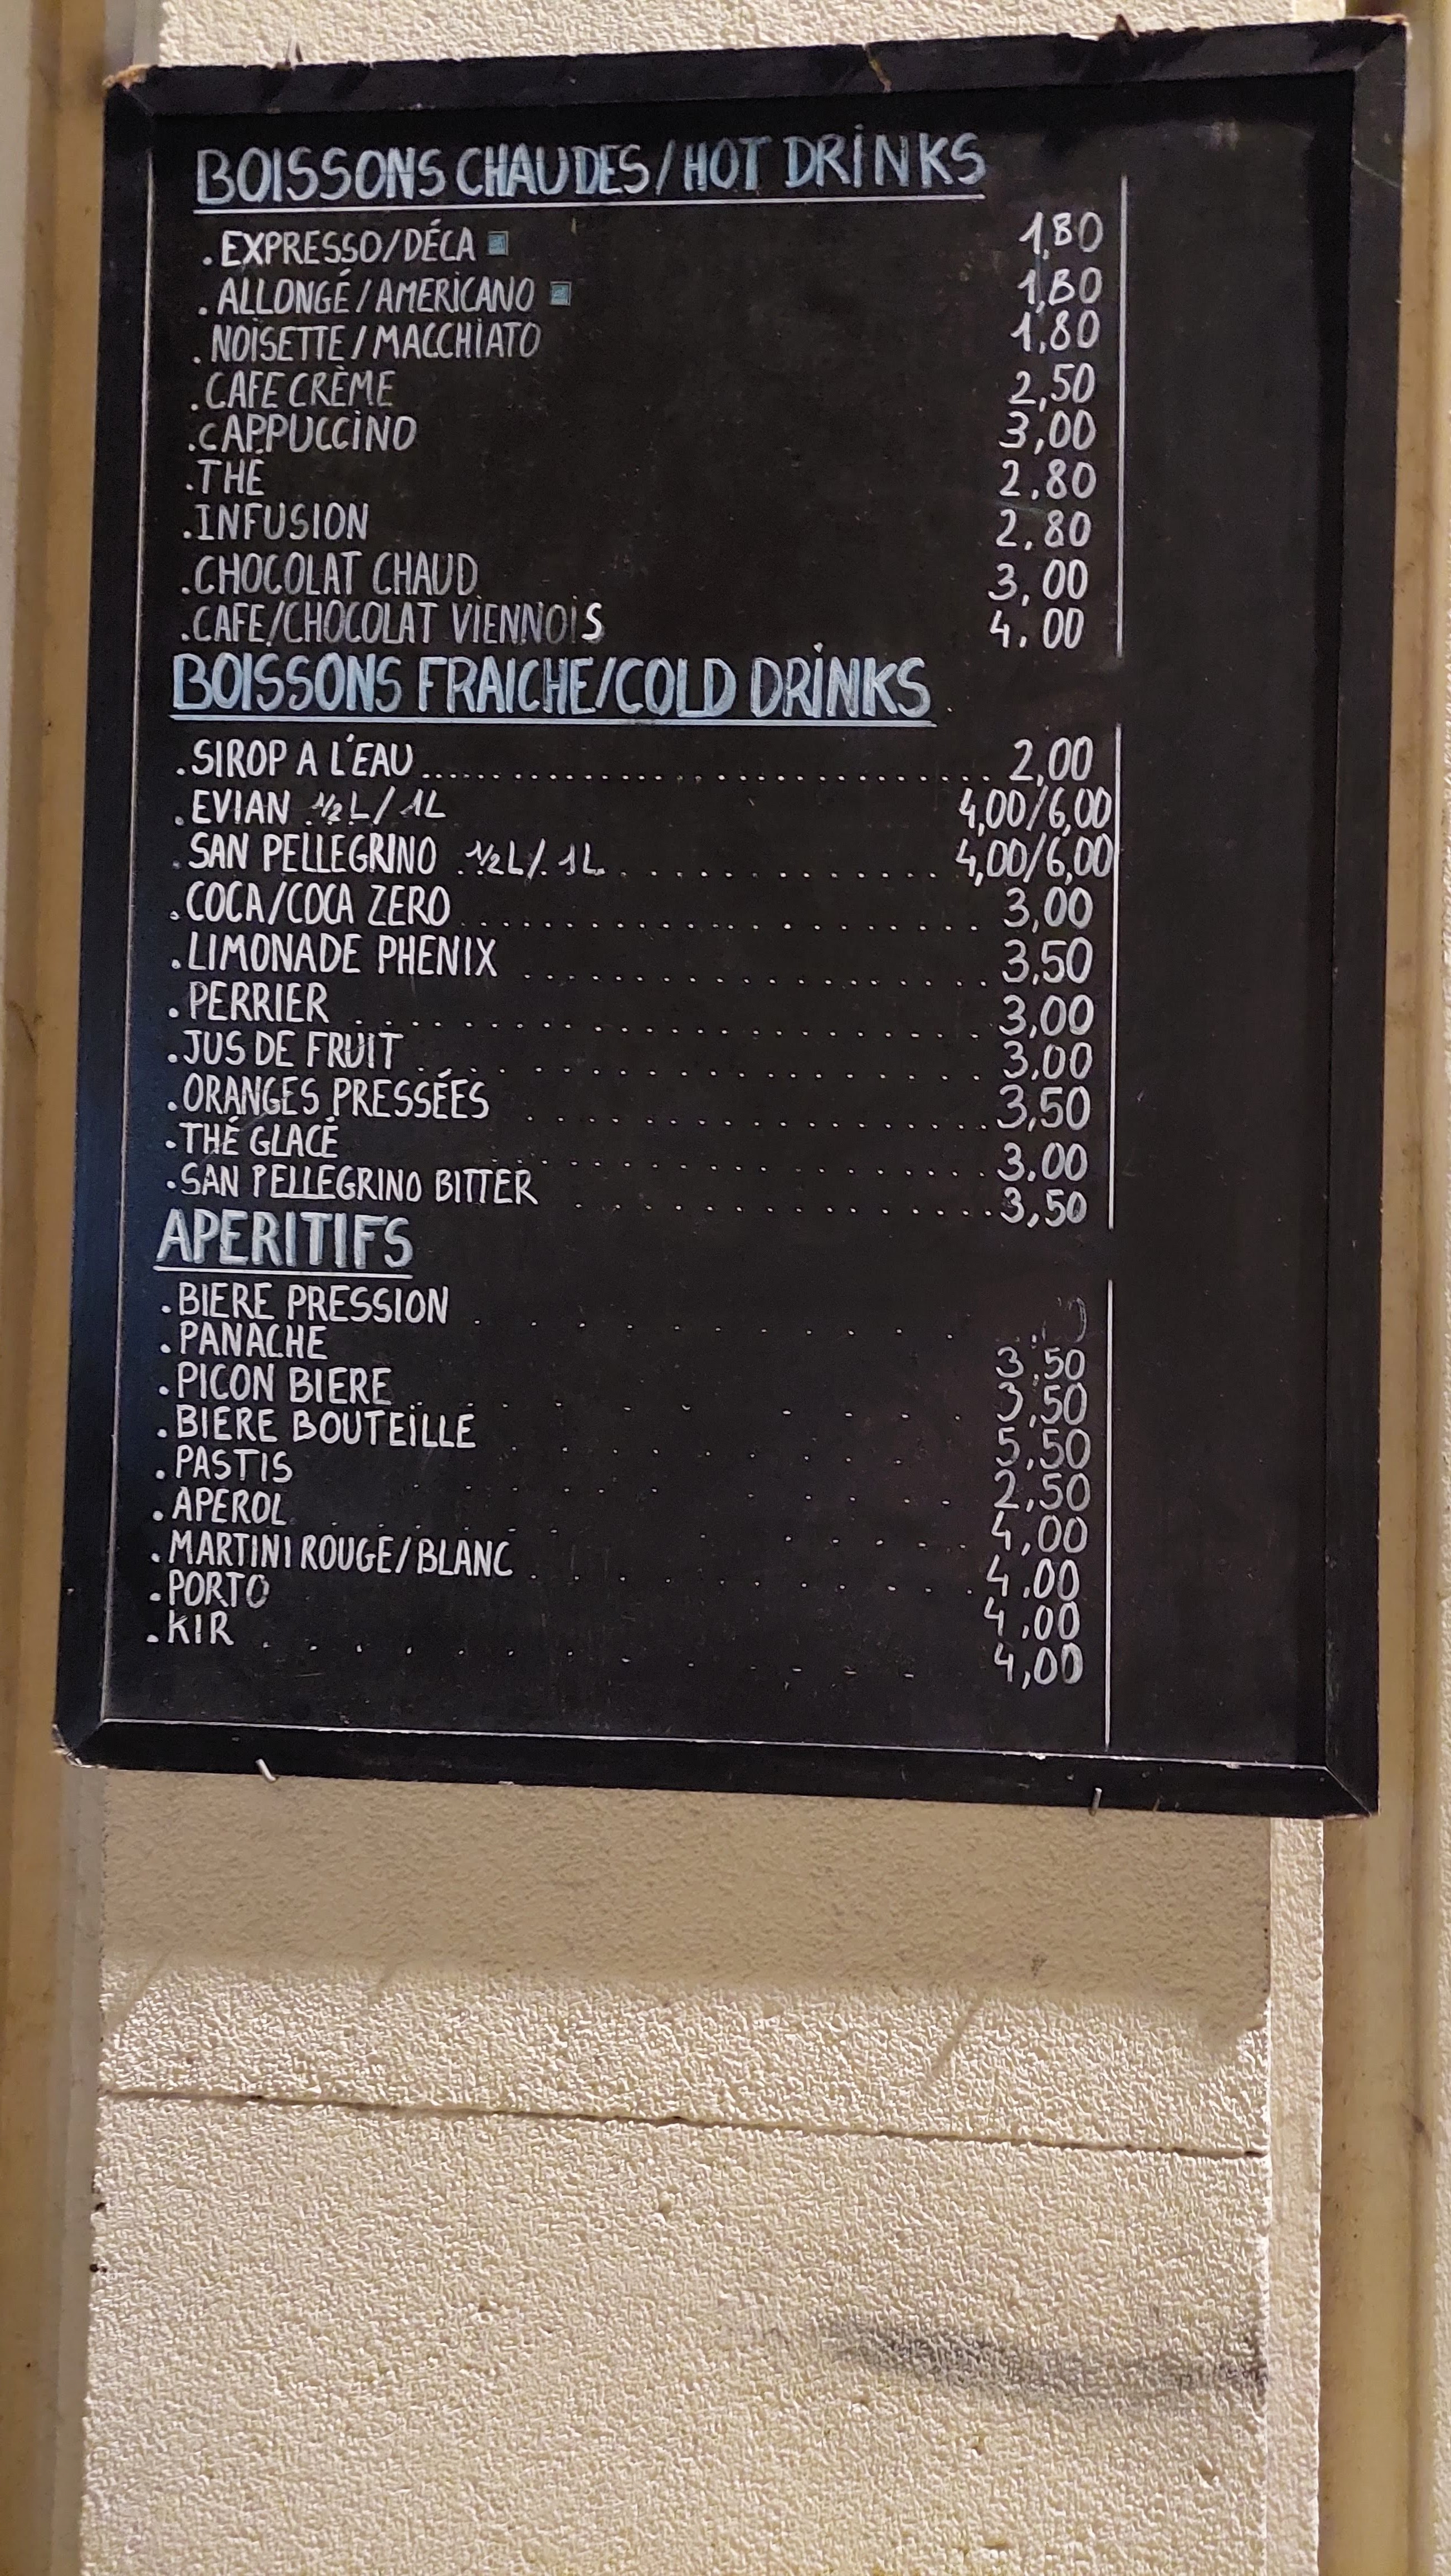 BOISSONS CHAUDES/HOT DRINKS
. EXPRESSO/DÉCA 1,80
. ALLONGÉ/AMERICANO 1,80
. NOISETTE/MACCHIATO 1,80
. CAFE CRÈME 2,50
. CAPPUCCINO 3,00
. THÉ 2,80
. INFUSION 2,80
. CHOCOLAT CHAUD 3,00
. CAFE/CHOCOLAT VIENNOIS 4,00
BOISSONS FRAICHE/COLD DRINKS
. SIROP A L'EAU 2,00
. EVIAN ½ L / 1L 4,00/6,00
. SAN PELLEGRINO ½ L / 1L 4,00/6,00
. COCA/COCA ZERO 3,00
. LIMONADE PHENIX 3,50
. PERRIER 3,00
. JUS DE FRUIT 3,00
. ORANGES PRESSÉES 3,50
. THÉ GLACÉ 3,00
. SAN PELLEGRINO BITTER 3,50
APERITIFS
. BIERE PRESSION
. PANACHE 3,50
. PICON BIERE 3,50
. BIERE BOUTEILLE 5,50
. PASTIS 2,50
. APEROL 4,00
. MARTINI ROUGE/BLANC 4,00
. PORTO 4,00
. KIR 4,00